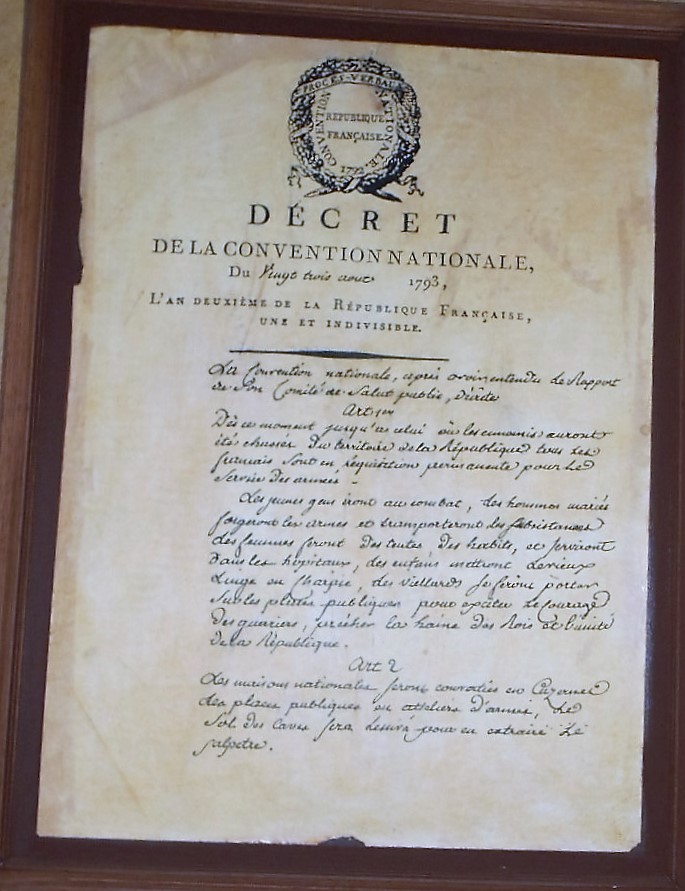 PROCÈS-VERBAUX
CONVENTION NATIONALE.
RÉPUBLIQUE
FRANÇAISE.
1792.
DÉCRET
DE LA CONVENTION NATIONALE,
Du Vingt trois aout 1793,
L'AN DEUXIÈME DE LA RÉPUBLIQUE FRANÇAISE,
UNE ET INDIVISIBLE.
La Convention nationale, après avoir entendu le Rapport
de Son Comité de Salut public, Décrète
Art 1er
Dès ce moment jusqu'à celui où les ennemis auront
été chassés Du territoire de la République tous Les
français sont en réquisition permanente pour Le
Service Des armées -
Les jeunes gens iront au combat, des hommes mariés
forgeront les armes et transporteront des Subsistances
des femmes feront Des tentes Des habits, et serviront
Dans les hopitaux, des enfans mettront Le vieux
Linge en Charpie, des viellards se feront porter
Sur les places publiques pour exciter Le Courage
Des guerriers, prêcher la haine Des Rois et L'unité
De la République.
Art 2
Les maisons nationales seront converties en Cazernes
des places publiques en atteliers D'armes, Le
Sol Des Caves sera Lessivé pour en extraire Le
salpetre.